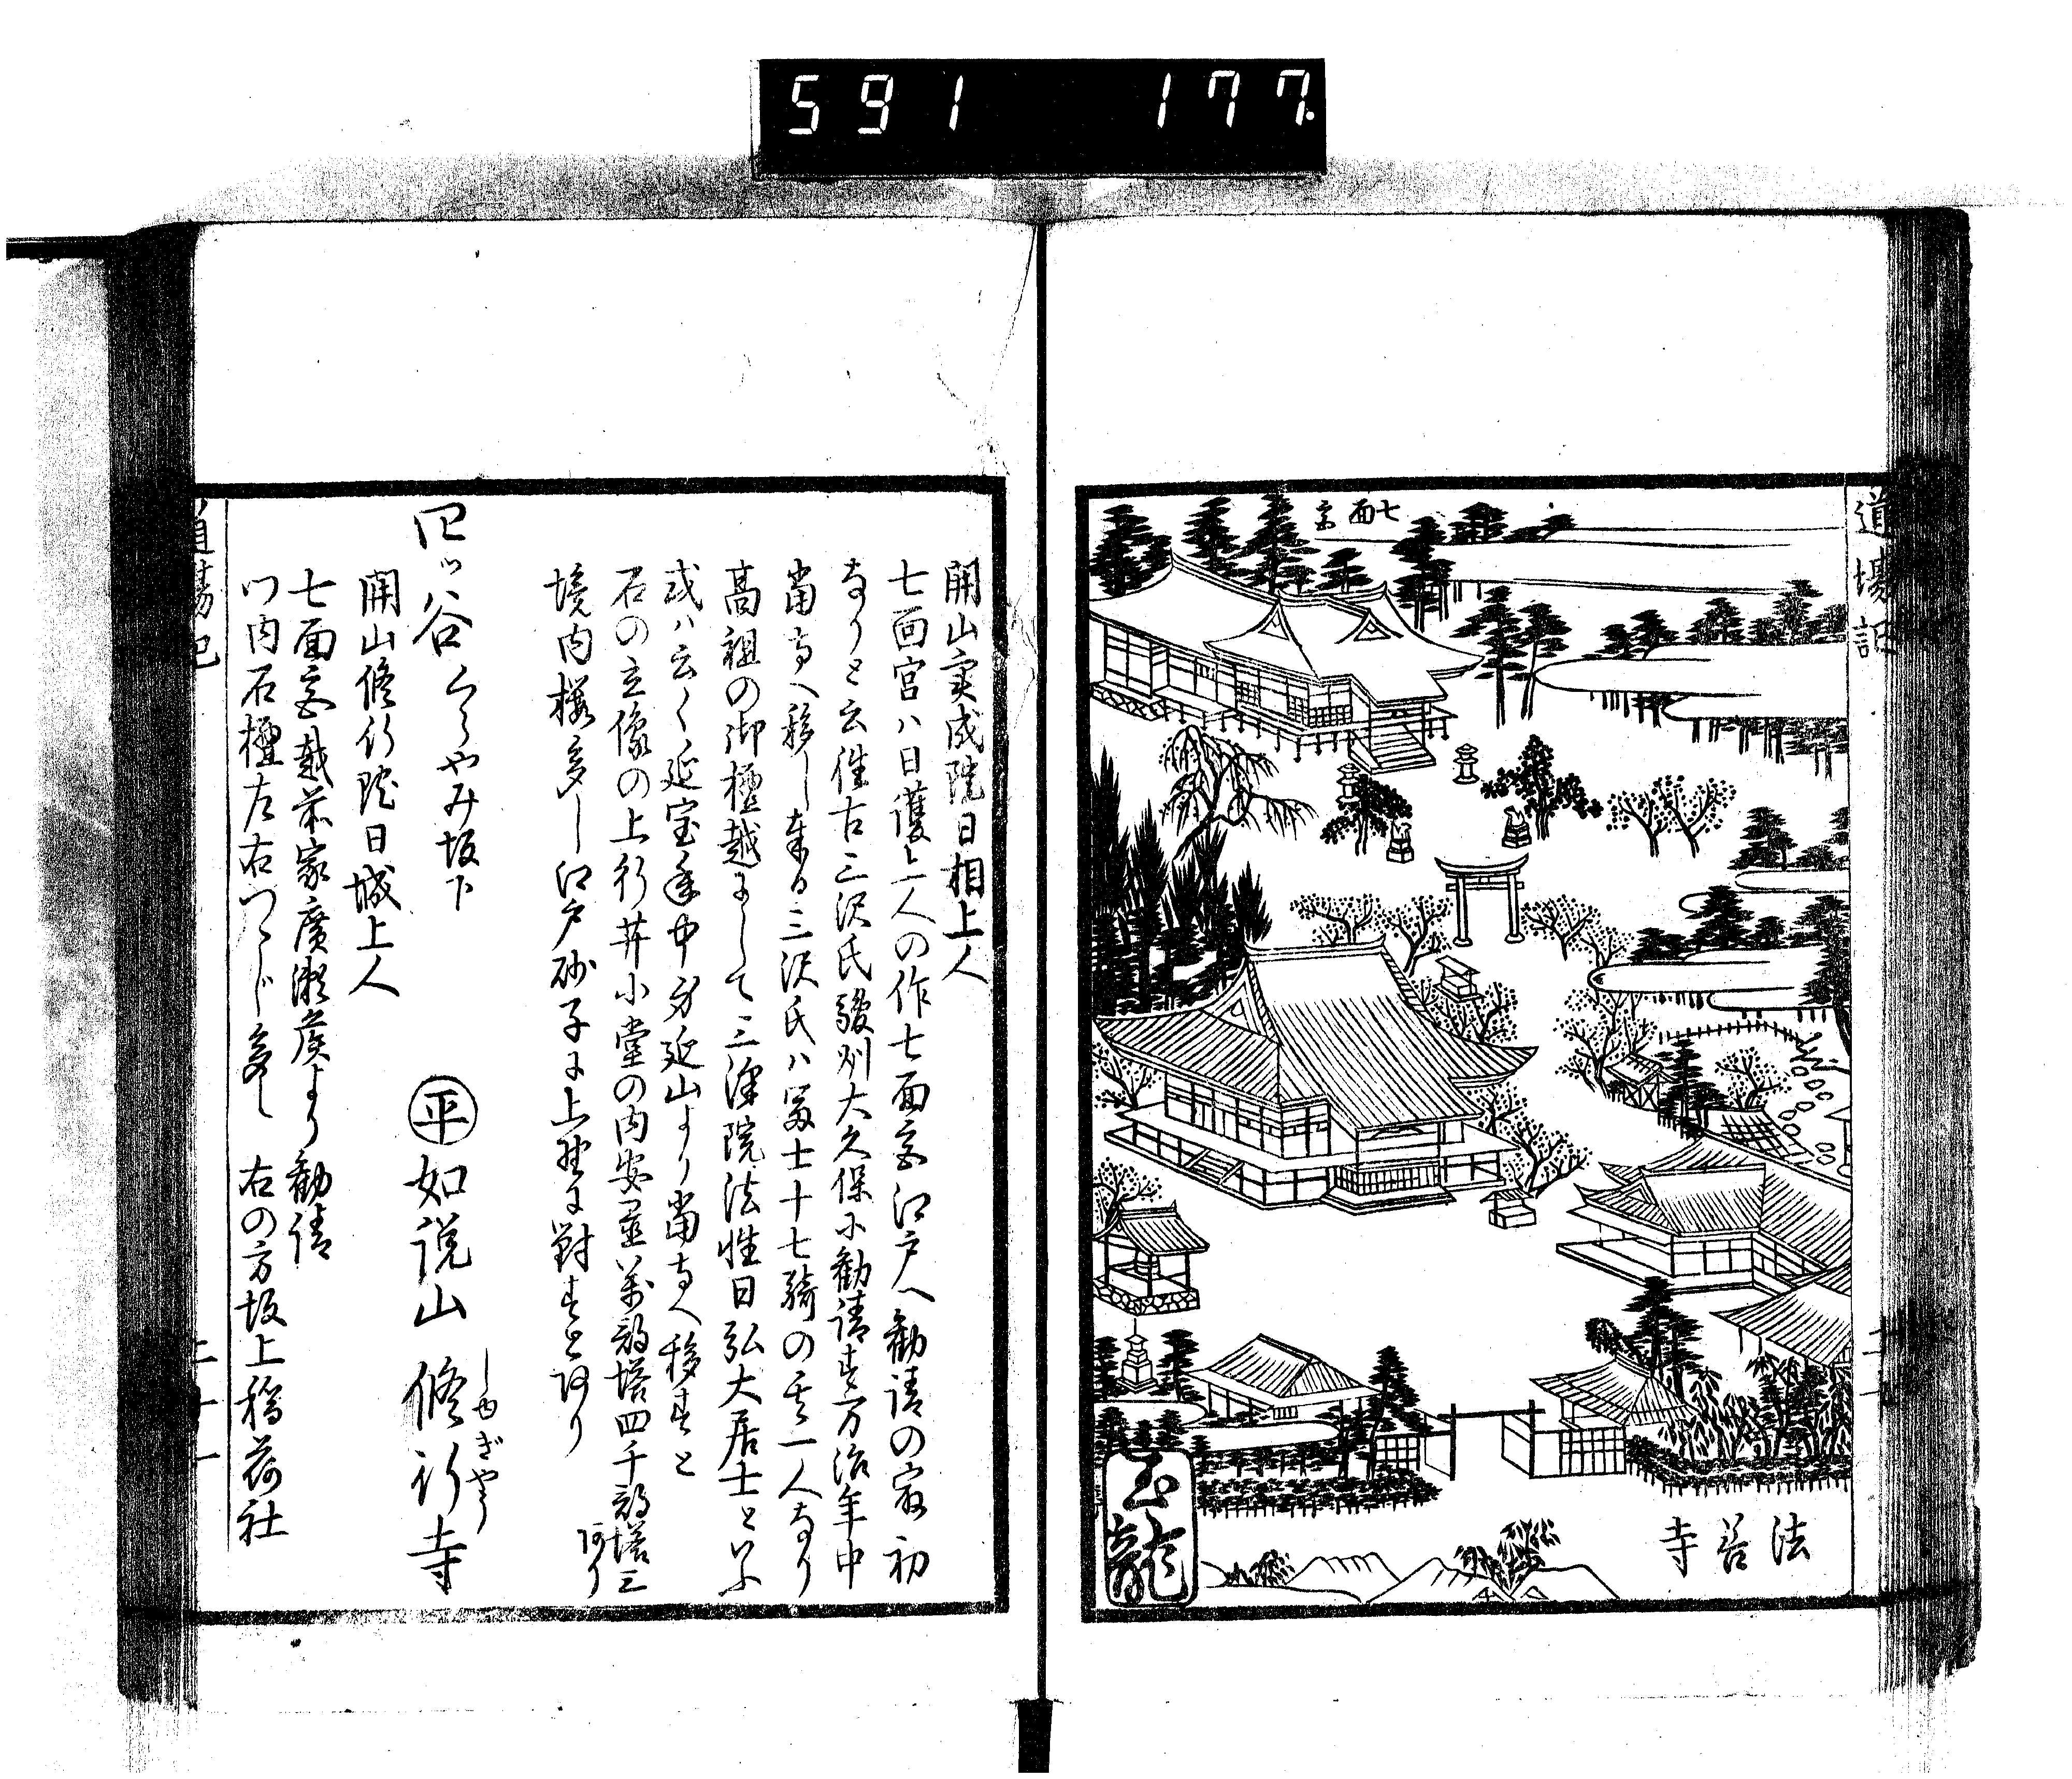 591 177
道場記
七面宮
法善寺
玉龍
開山実成院日相上人
七面宮ハ日護上人の作七面宮江戸へ勧請の最初
なりと云往古三沢氏駿州大久保に勧請す万治年中
当寺へ移し奉る三沢氏ハ富士十七騎の其一人なり
高祖の御檀越にして三澤院法性日弘大居士といふ
或ハ云く延宝年中身延山より当寺へ移すと
石の立像の上行井小堂の内安置萬部塔四千部塔三あり
境内桜多し江戸砂子に上野に対すとあり
四ッ谷くらやみ坂下
㊥如説山修行寺
しゆぎやう
開山修行院日城上人
七面宮越前家廣瀬侯より勧請
門内石檀左右つゝじ多し 右の方坂上稲荷社
道場記
二十一